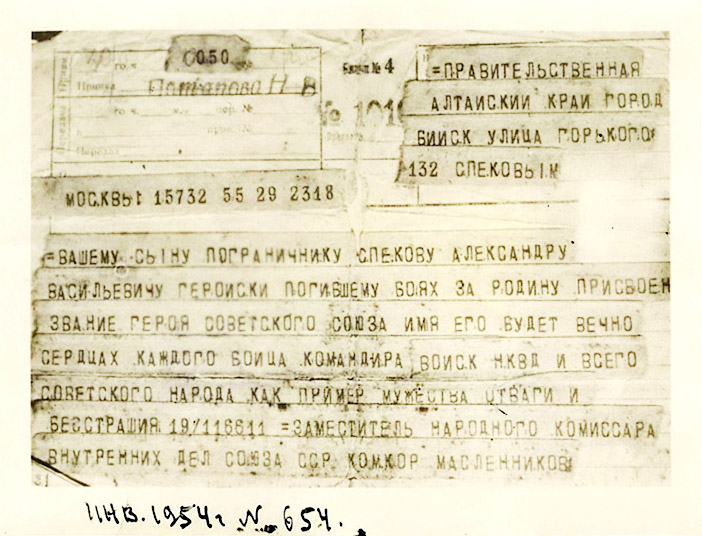 050
го ч.
Потапова Н В
Бланк № 4
№ 1019
=ПРАВИТЕЛЬСТВЕННАЯ
АЛТАИСКИИ КРАИ ГОРОД
БИИСК УЛИЦА ГОРЬКОГО
132 СПЕКОВЫМ
МОСКВЫ 15732 55 29 2318
=ВАШЕМУ СЫНУ ПОГРАНИЧНИКУ СПЕКОВУ АЛЕКСАНДРУ
ВАСИЛЬЕВИЧУ ГЕРОИСКИ ПОГИБШЕМУ БОЯХ ЗА РОДИНУ ПРИСВОЕН
ЗВАНИЕ ГЕРОЯ СОВЕТСКОГО СОЮЗА ИМЯ ЕГО БУДЕТ ВЕЧНО
СЕРДЦАХ КАЖДОГО БОИЦА КОМАНДИРА ВОИСК НКВД И ВСЕГО
СОВЕТСКОГО НАРОДА КАК ПРИМЕР МУЖЕСТВА ОТВАГИ И
БЕССТРАШИЯ 19/116611 =ЗАМЕСТИТЕЛЬ НАРОДНОГО КОМИССАРА
ВНУТРЕННИХ ДЕЛ СОЮЗА ССР КОМКОР МАСЛЕННИКОВ
ИНВ. 1954г № 654.